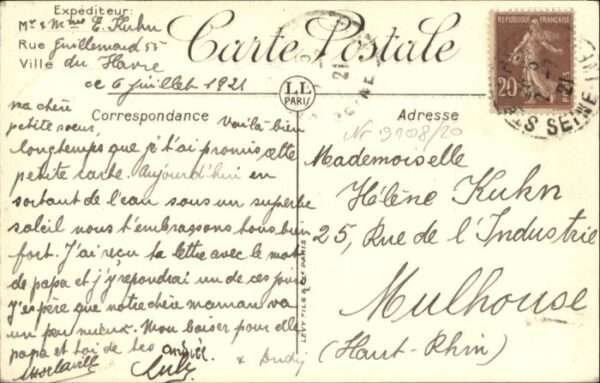 Expéditeur:
Mr & Mme E. Kuhn
Rue Guillemard 55
Ville du Havre
ce 6 juillet 1921
Carte Postale
RÉPUBLIQUE FRANÇAISE
20
LL
PARIS
Correspondance
Adresse
Nr 9108/20
Ma chère
petite soeur, Voilà bien
longtemps que je t'ai promis cette
petite carte. Aujourd'hui en
sortant de l'eau sous un superbe
soleil nous t'embrassons tous bien
fort. J'ai reçu ta lettre avec le mot
de papa et j'y répondrai un de ces jours
J'espère que notre chère maman va
un peu mieux. Mon baiser pour elle
papa et toi de tes
Mademoiselle
Hélène Kuhn
25, Rue de l'Industrie
Mulhouse
(Haut-Rhin)
LEVY FILS & Cie PARIS